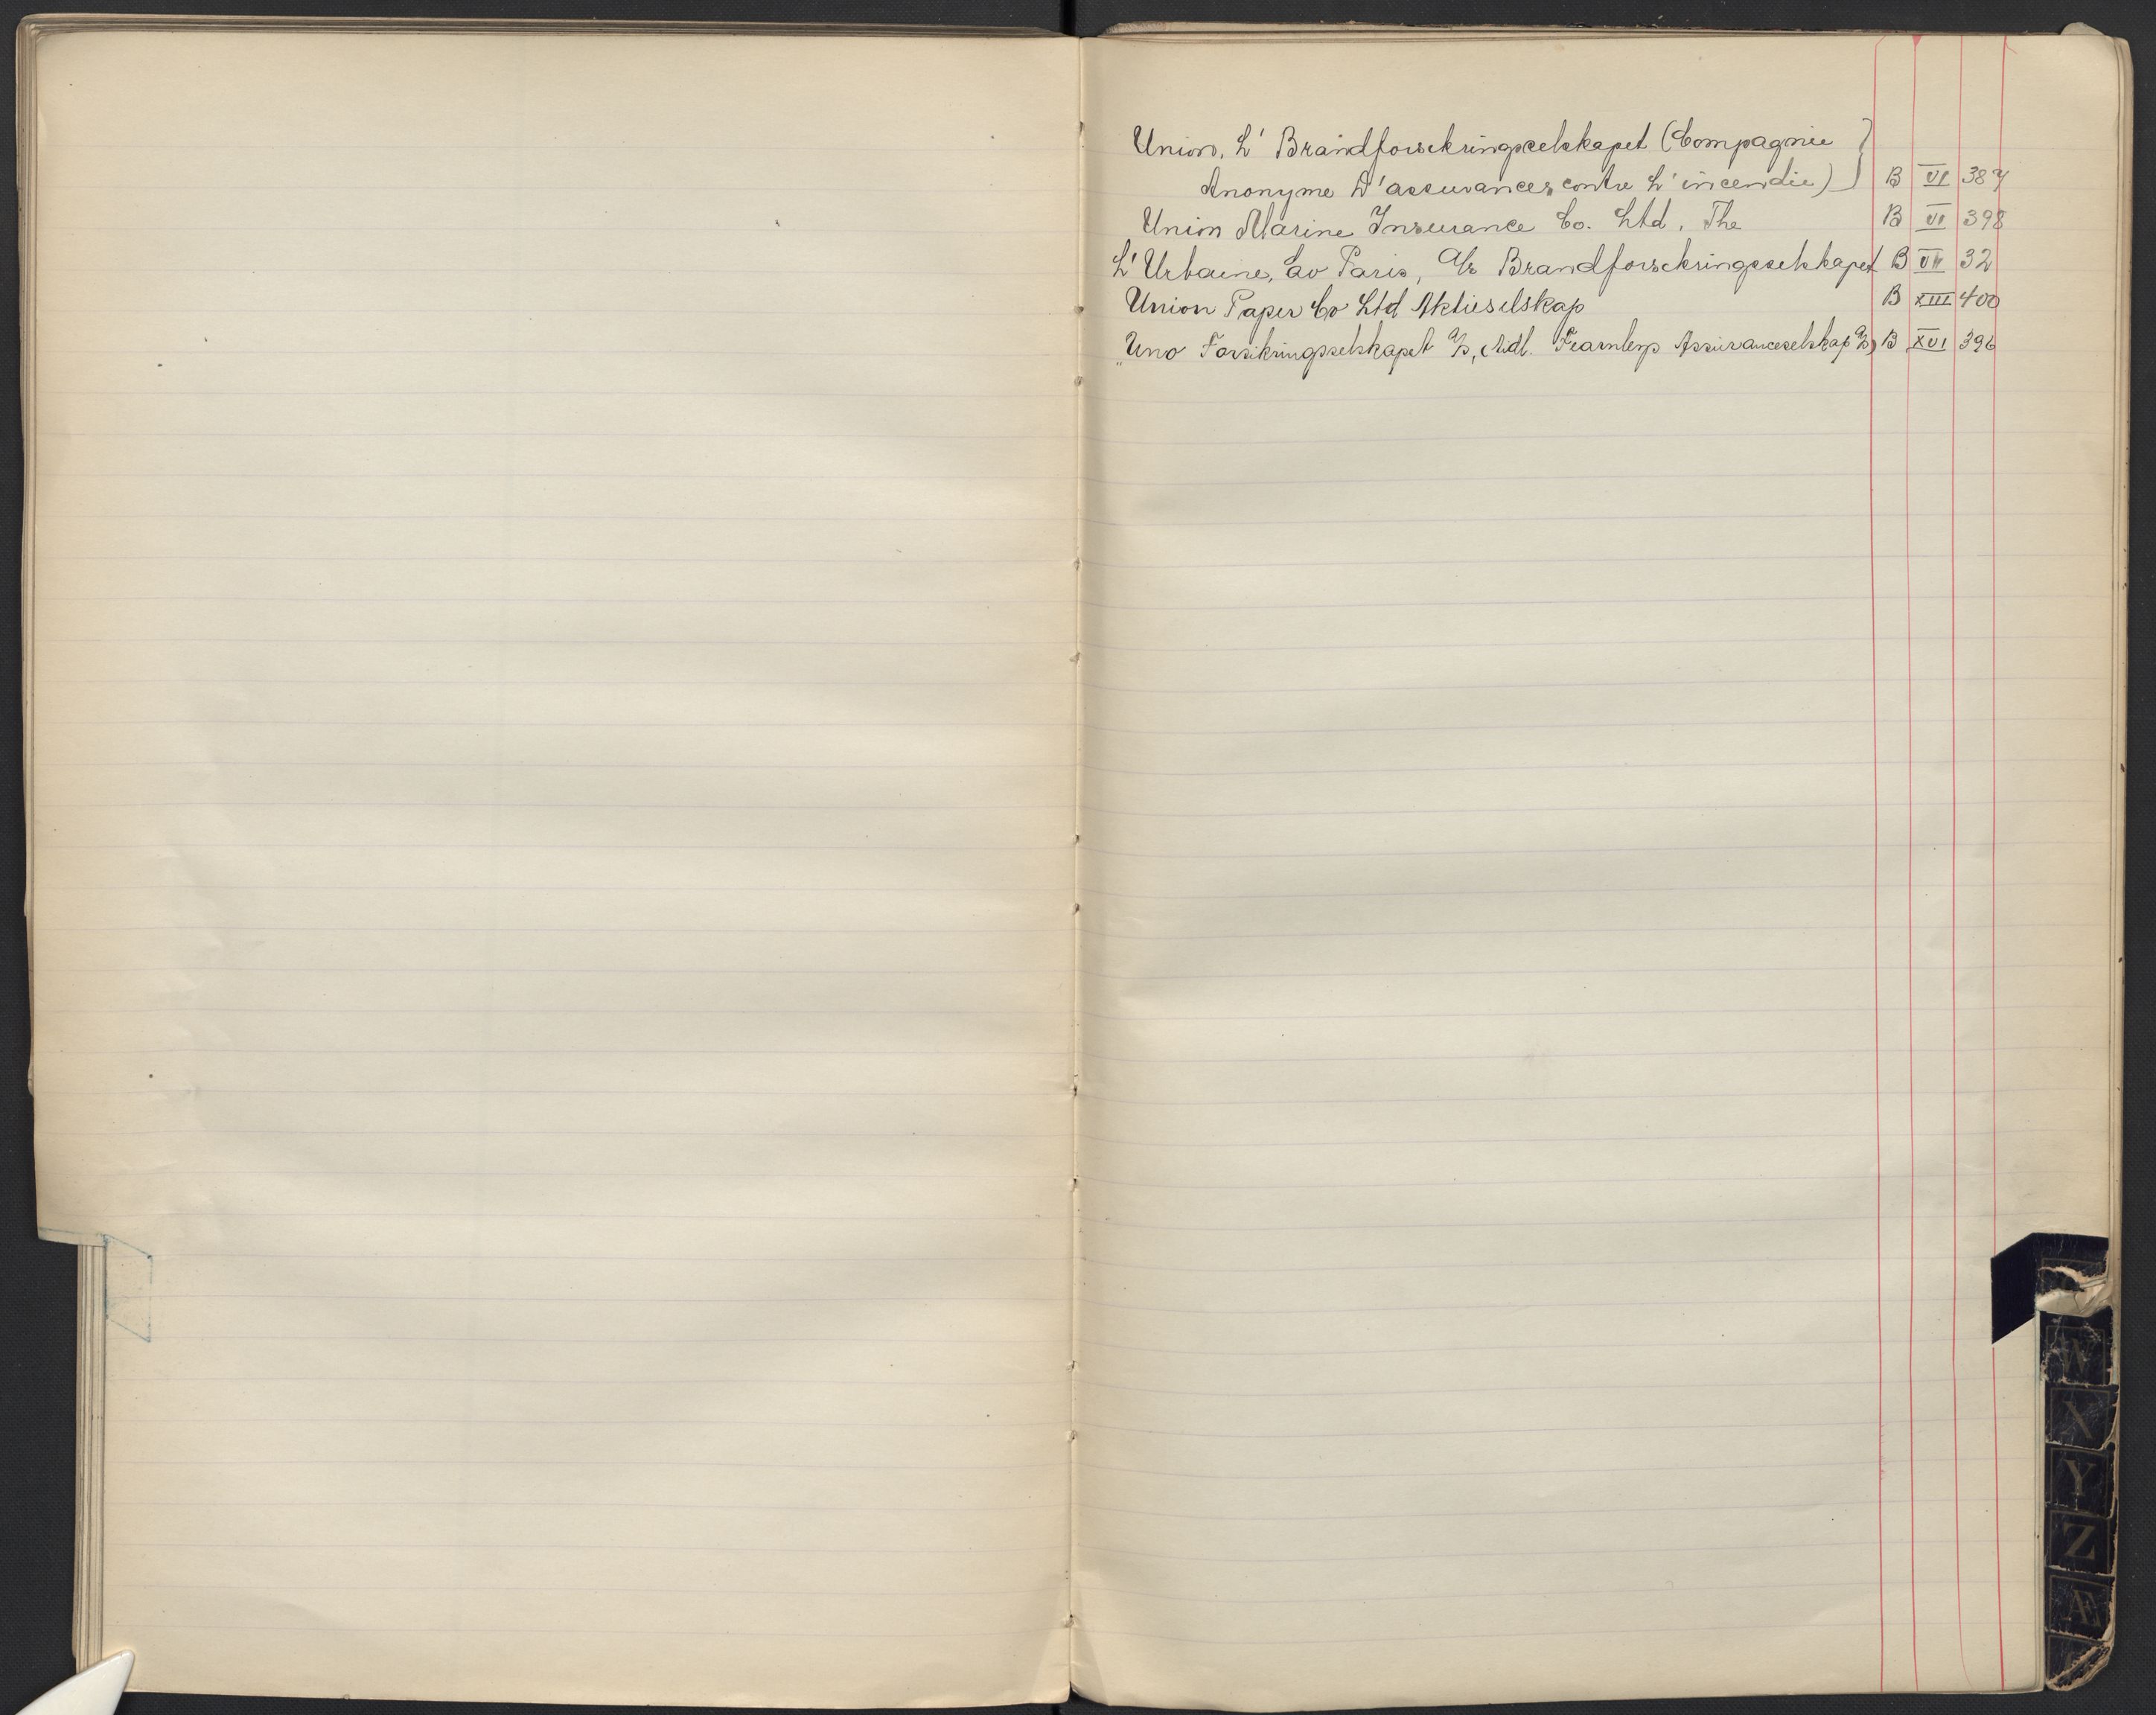 Union, L' Brandforsekringsselskapet (Compagnie
Anonyme D'assurances contre L'incendie) } B VI 387
Union Marine Insurance Co. Ltd. The B VI 398
L'Urbaine, av Paris, A/s Brandforsekringsselskapet B VII 32
Union Paper Co Ltd Aktieselskap B XIII 400
"Uno Forsikringsselskapet A/s, Fearnleys Assuranceselskap A/s) B XVI 396
W
X
Y
Z
Æ